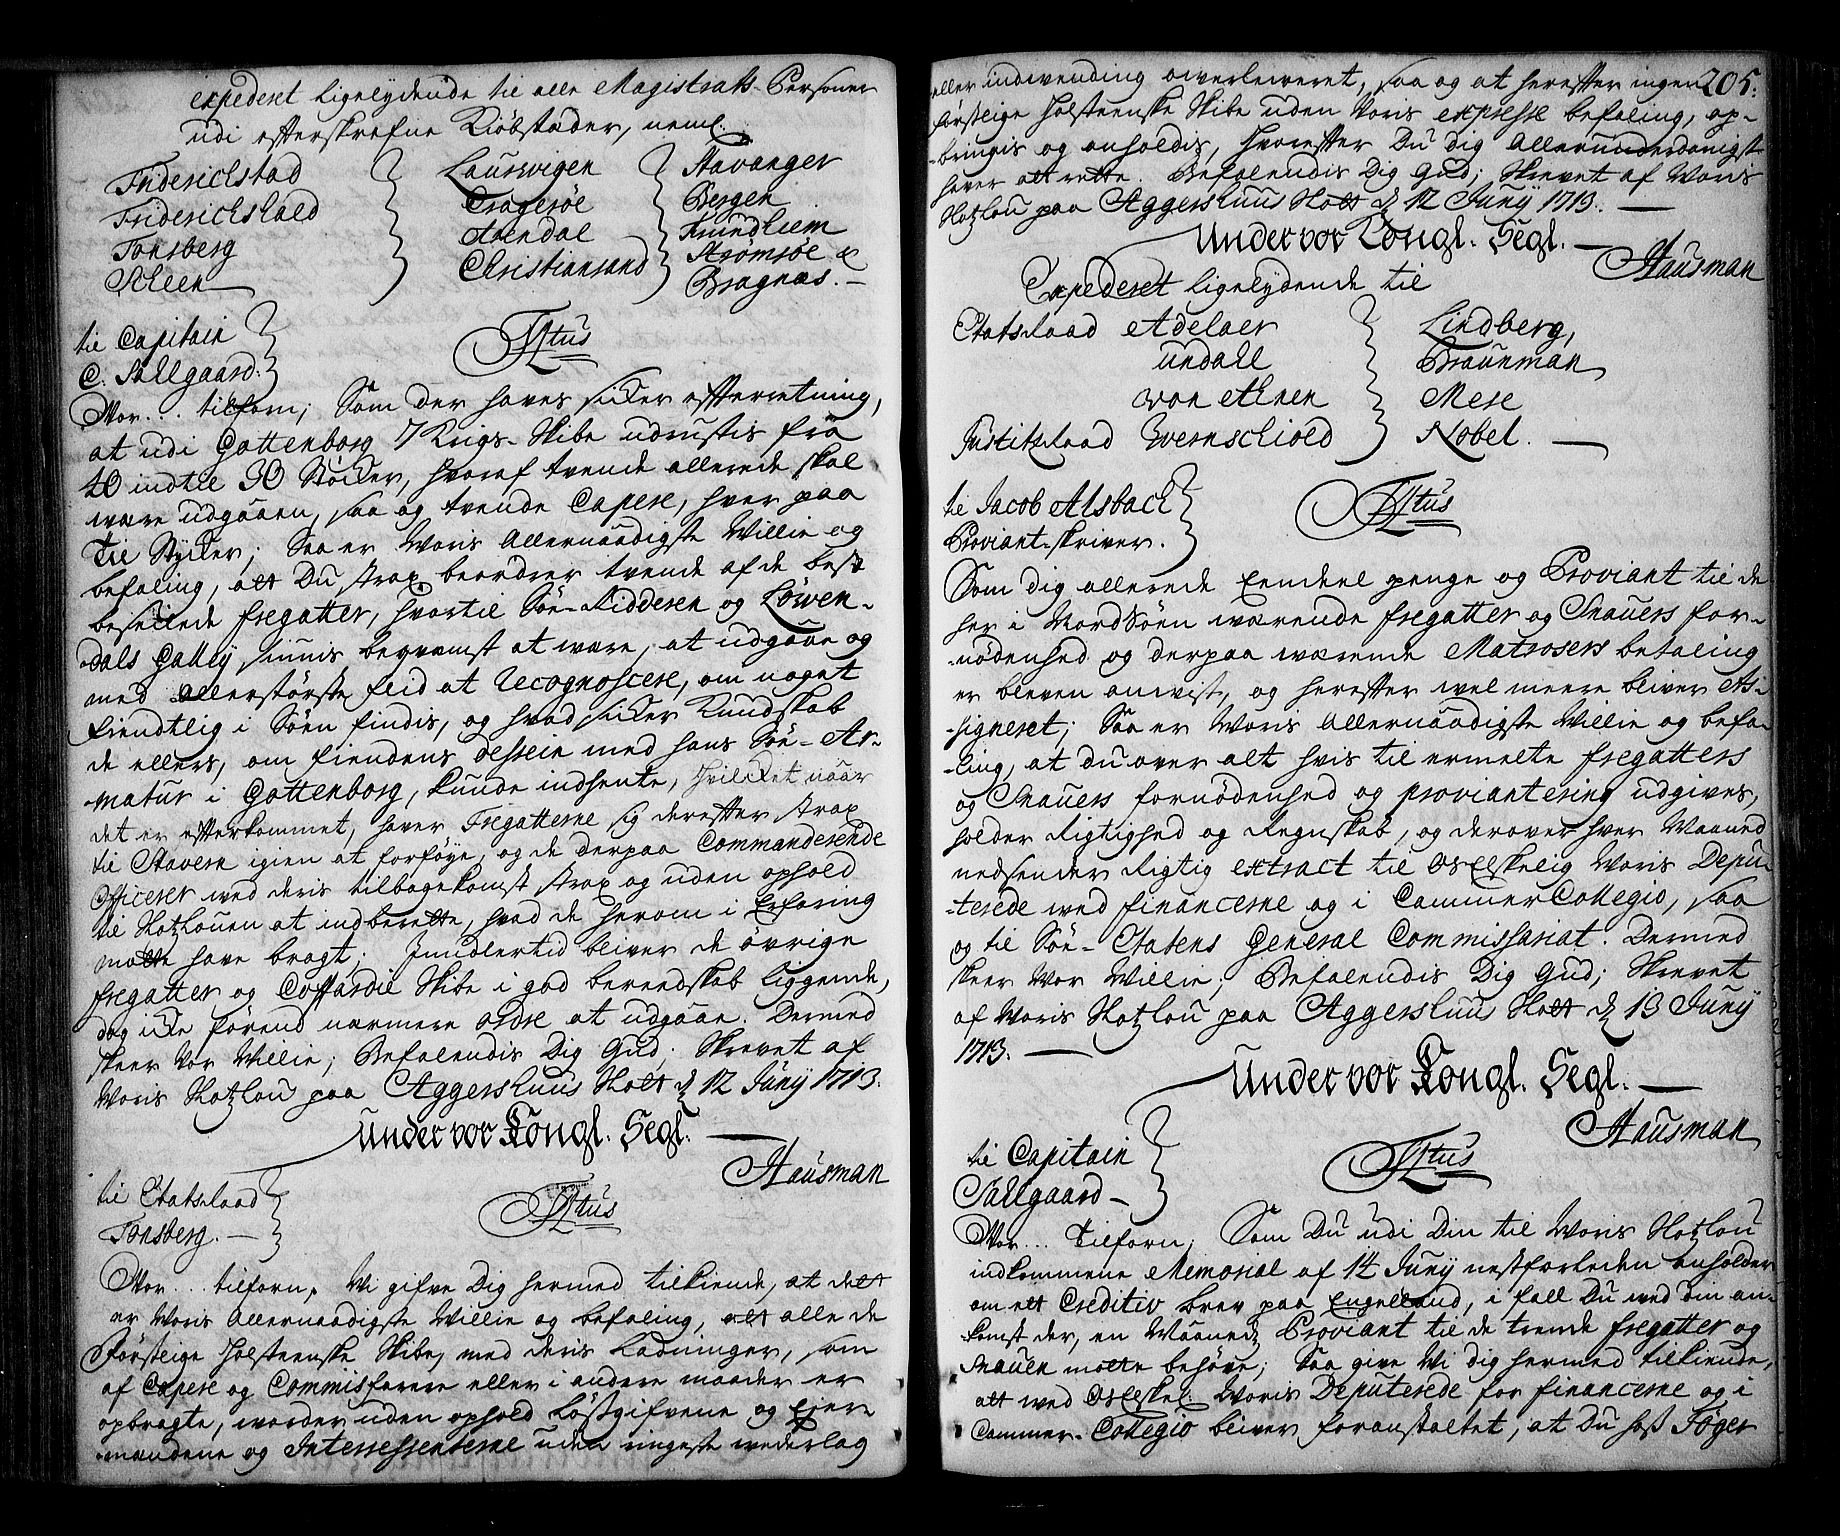 expederet ligelydende til alle Magistrats-Personer
udi efterskrefne Kiöbstæder, neml.
Friderichstad
Friderichshald
Tonsberg
Scheen
Laurwigen
Cragerøe
Arendal
Christiansand
Stavanger
Bergen
Trundhiem
Strømsøe &
Bragnæs.
til Capitain
C. Sallgaard.
F4tus
Wor... tilforn; Som der haves sicker efterretning,
at udi Gottenborg 7 Krigs-Skibe udrustis fra
40 indtil 30 Stöcker, hvoraf tvende allerede skal
være udgaaen, saa og tvende Capere, hver paa
Til Stycker; Saa er Woris Allernaadigste Willie og
befaling, att Du strax beordrer tvende af de best
beseilede fregatter, hvortil Söe-Ridderen og Löwen-
dals Galley siunis beqvemst at være, at udgaae og
med allerstörste flid at Recognoscere, om noget
fiendtlig i Söen findis, og hvad sicker Kundskab
de ellers, om fiendens dessein med hans Söe-Ar-
matur i Gottenborg, kunde indhente, hvilcket naar
det er efterkommet, haver Fregatterne sig derefter strax
til Stavern igien at forföye, og de derpaa Commanderende
Officerer ved deris tilbagekomst strax og uden ophold
til Slotzlouen at indberette, hvad de herom i Erfaring
motte have bragt; Imidlertid bliver de övrige
fregatter og Coffardie Skibe i god beredskab liggende,
dog icke förend nærmere ordre at udgaae. Dermed
skeer Vor Willie; Befalendis Dig Gud; Skrevet af
Woris Slotzlou paa Aggershuus Slott d 12 Junij 1713.
Under vor Kongl. Segl.
Hausman
til Etatsraad
Tonsberg.
F4tus
Wor... tilforn, Wi gifve Dig hermed tilkiende, at dett
er Woris Allernaadigste Willie og befaling, att alle de
Förstlige Holsteenske Skibe, med deris Ladninger, som
af Capere og Commisfarere eller i andre maader er
opbragte, worder uden ophold lösgifvene og Ejer-
mændene og Interessenterne uden ringeste wederlag
205.
eller indvending overleweret, saa og at herefter ingen
förstlige Holsteenske Skibe uden Voris expresse befaling, op-
bringis og anholdis, Hvorefter Du dig Allerunderdanigst
haver att rette. Befalendis Dig Gud; Skrevet af Woris
Slotzlou paa Aggershuus Slott d 12 Junij 1713.
Under vor Kongl. Segl.
Hausman
Expederet ligelydende til
Etatsraad Adelaer
Undall
von Ahnen
Justitzraad Wernschiold
Lindberg,
Braunman
Mese
Nobel.
til Jacob Alsbach
Proviant-skriver.
F4tus
Som dig allerede Eendeel penge og Proviant til de
her i NordSöen værende fregatter og Snauers for-
nödenhed og derpaa wærende Matrosers betaling
er bleven anvist, og herefter wel meere bliver As-
signeret; Saa er Woris Allernaadigste Willie og befa-
ling, at du over alt hvis til ermelte fregatters
og Snauers fornödenhed og proviantering udgives,
holder Rigtighed og Regnskab, og derover hver Maaned
nedsender Rigtig extract til OsElskelig Woris Depu-
terede wed financerne og i CammerCollegio, saa
og til Söe-Etatens General Commissariat. Dermed
skeer Vor Willie; Befalendis Dig Gud; Skrevet
af Woris Slotzlou paa Aggershuus Slott d 13 Junij
1713.
Under vor Kongl. Segl.
Hausman
til Capitain
Sallgaard
F4tus
Wor... tilforn; Som Du udi Din til Woris Slotzlou
indkommene Memorial af 14 Junij nestforleden anholder
om ett Creditiv brev paa Engelland, i fall Du wed din an-
komst der, en Maanedz Proviant til de trende fregatter og
Snauen motte behöve; Saa give Wi dig hermed tilkiende,
att wed OsElskel. Woris Deputerede for financerne og i
Cammer-Collegio bliver foranstaltet, at Du hoss Jöger